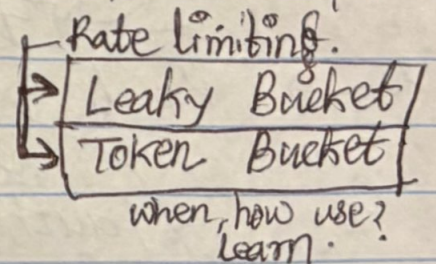 Rate limiting.
Leaky Bucket
Token Bucket
when, how use?
Learn.